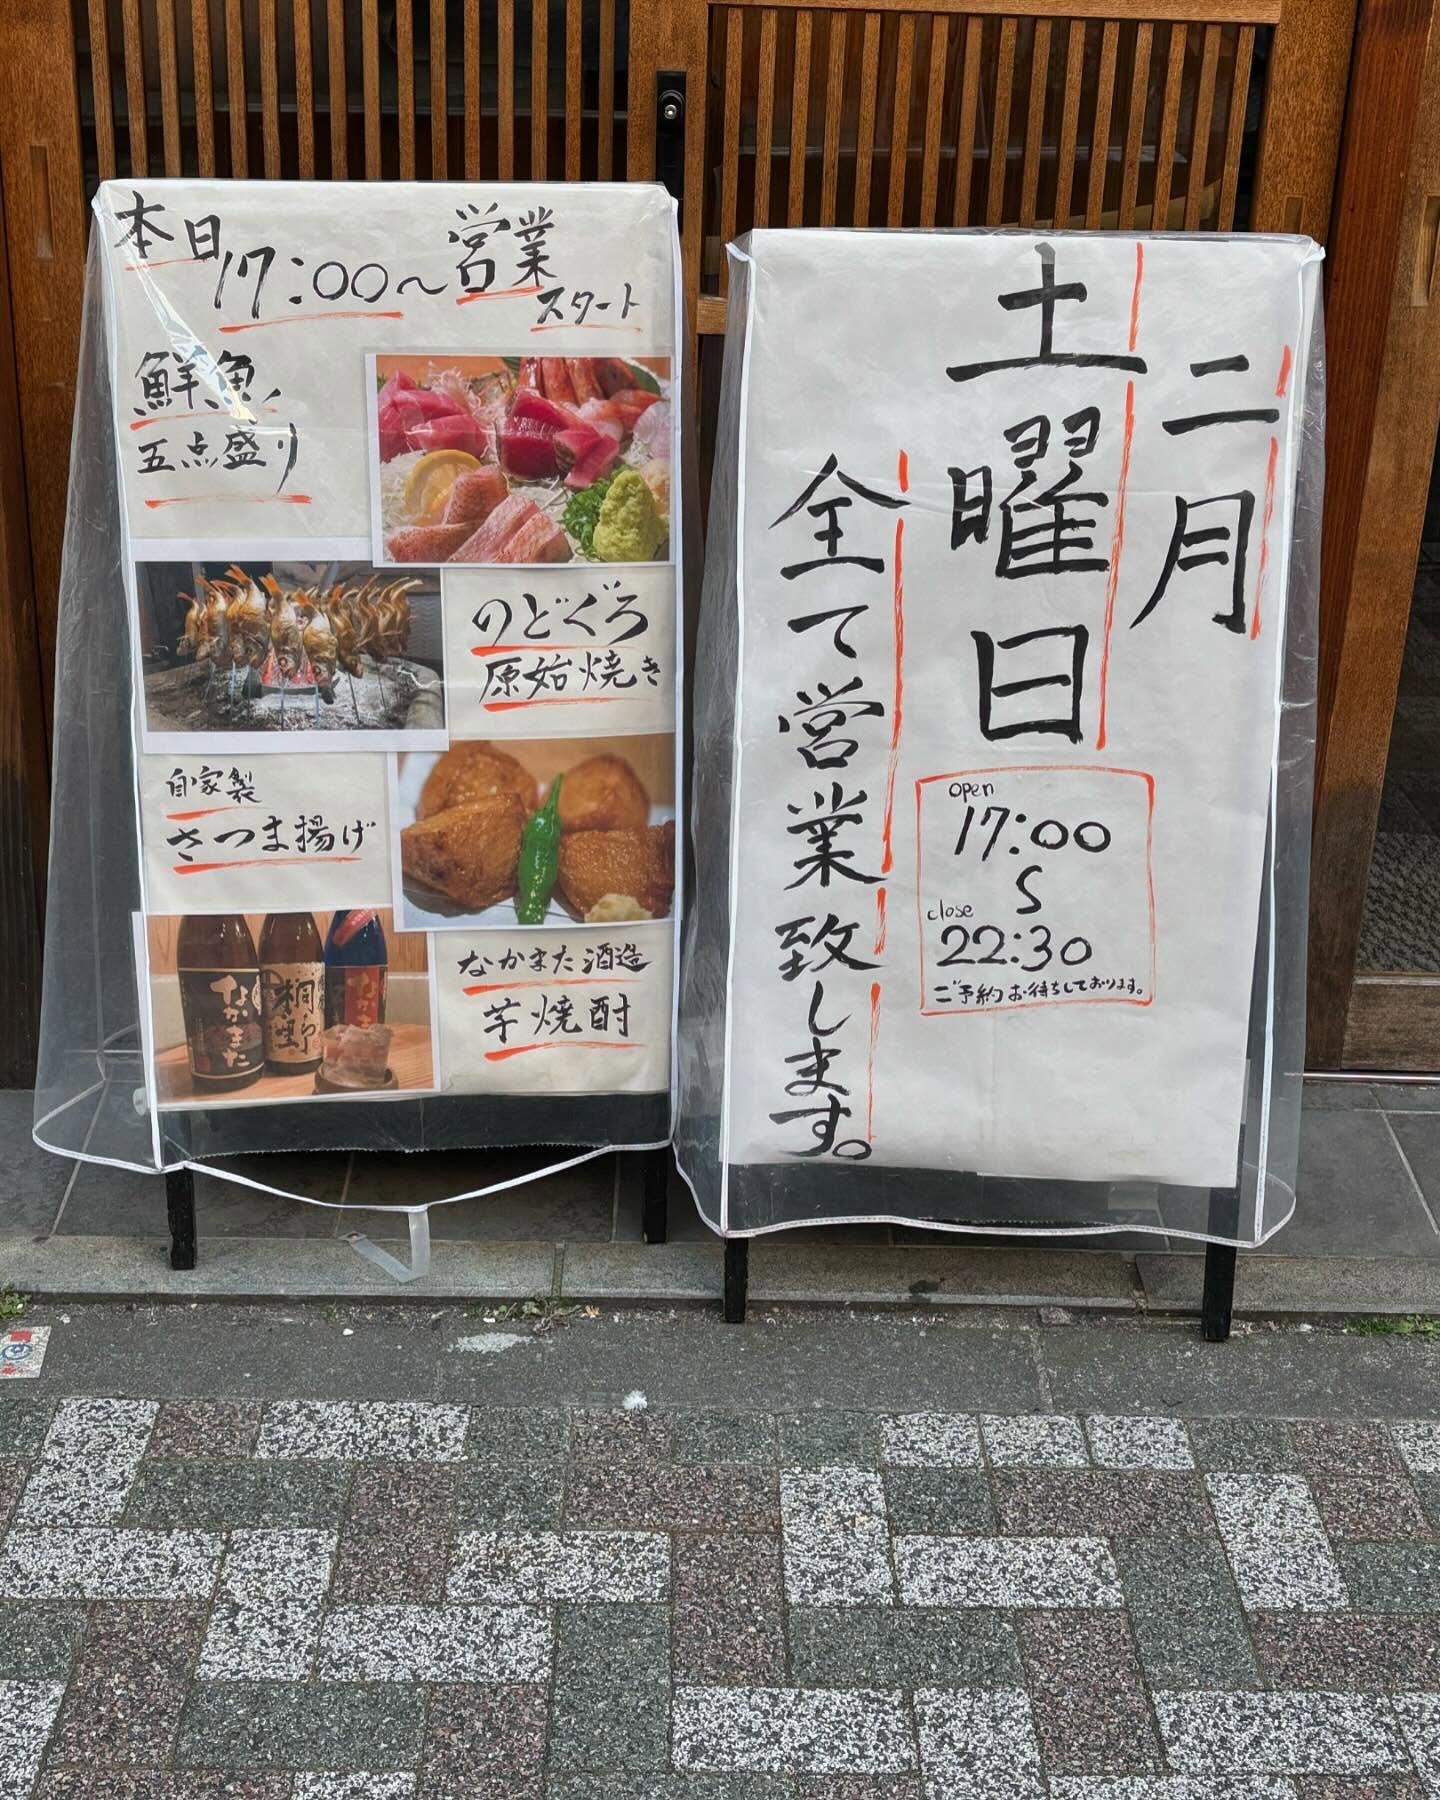 本日
17:00～営業
スタート
鮮魚
五点盛り
のどぐろ
原始焼き
自家製
さつま揚げ
なかまた酒造
芋焼酎
なかまた
桐野
なかま
二月
土曜日
全て営業致します。
open
17:00
〜
close
22:30
ご予約お待ちしております。